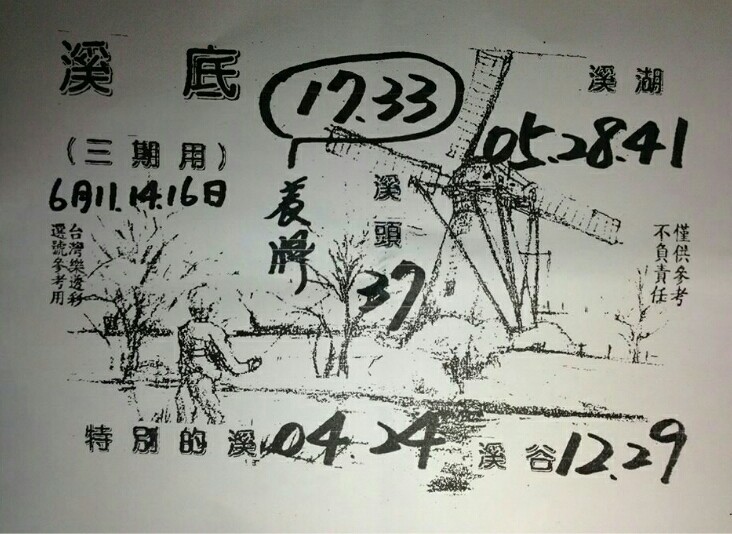 溪底
17.33
溪湖
05.28.41
(三期用)
6月11.14.16日
溪頭
37
台灣樂透彩
選號參考用
僅供參考
不負責任
特別的溪
04.24
溪谷
12.29